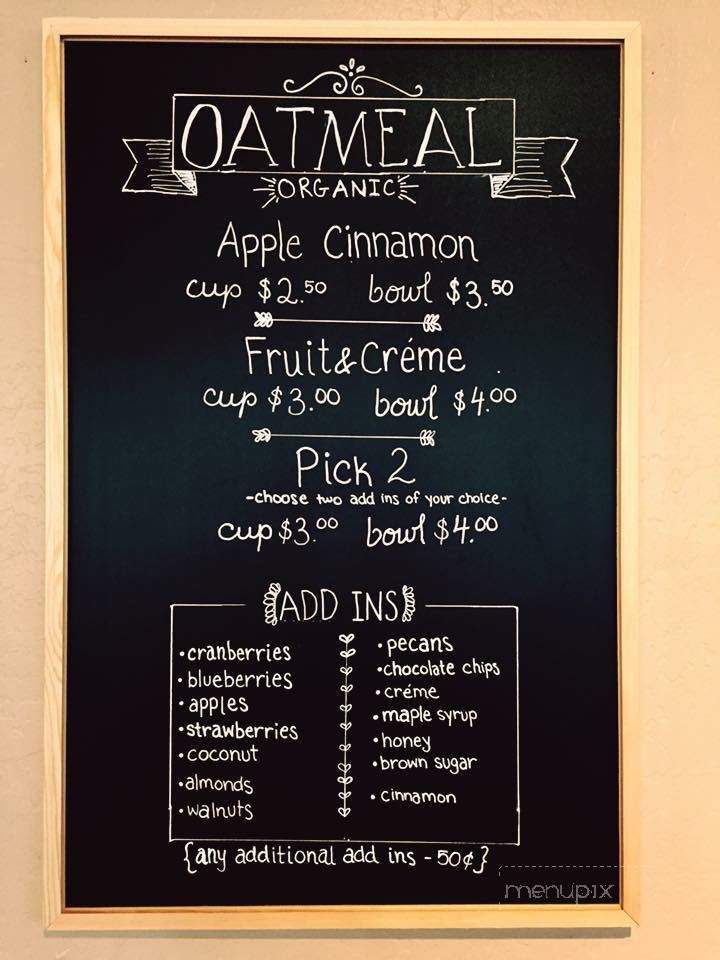 OATMEAL
ORGANIC
Apple Cinnamon
cup $2.50 bowl $3.50
Fruit&Créme
cup $3.00 bowl $4.00
Pick 2
-choose two add ins of your choice-
cup $3.00 bowl $4.00
ADD INS
•cranberries
•blueberries
•apples
•strawberries
•coconut
•almonds
•walnuts
•pecans
•chocolate chips
•créme
•maple syrup
•honey
•brown sugar
•cinnamon
{any additional add ins - 50¢}
menupix